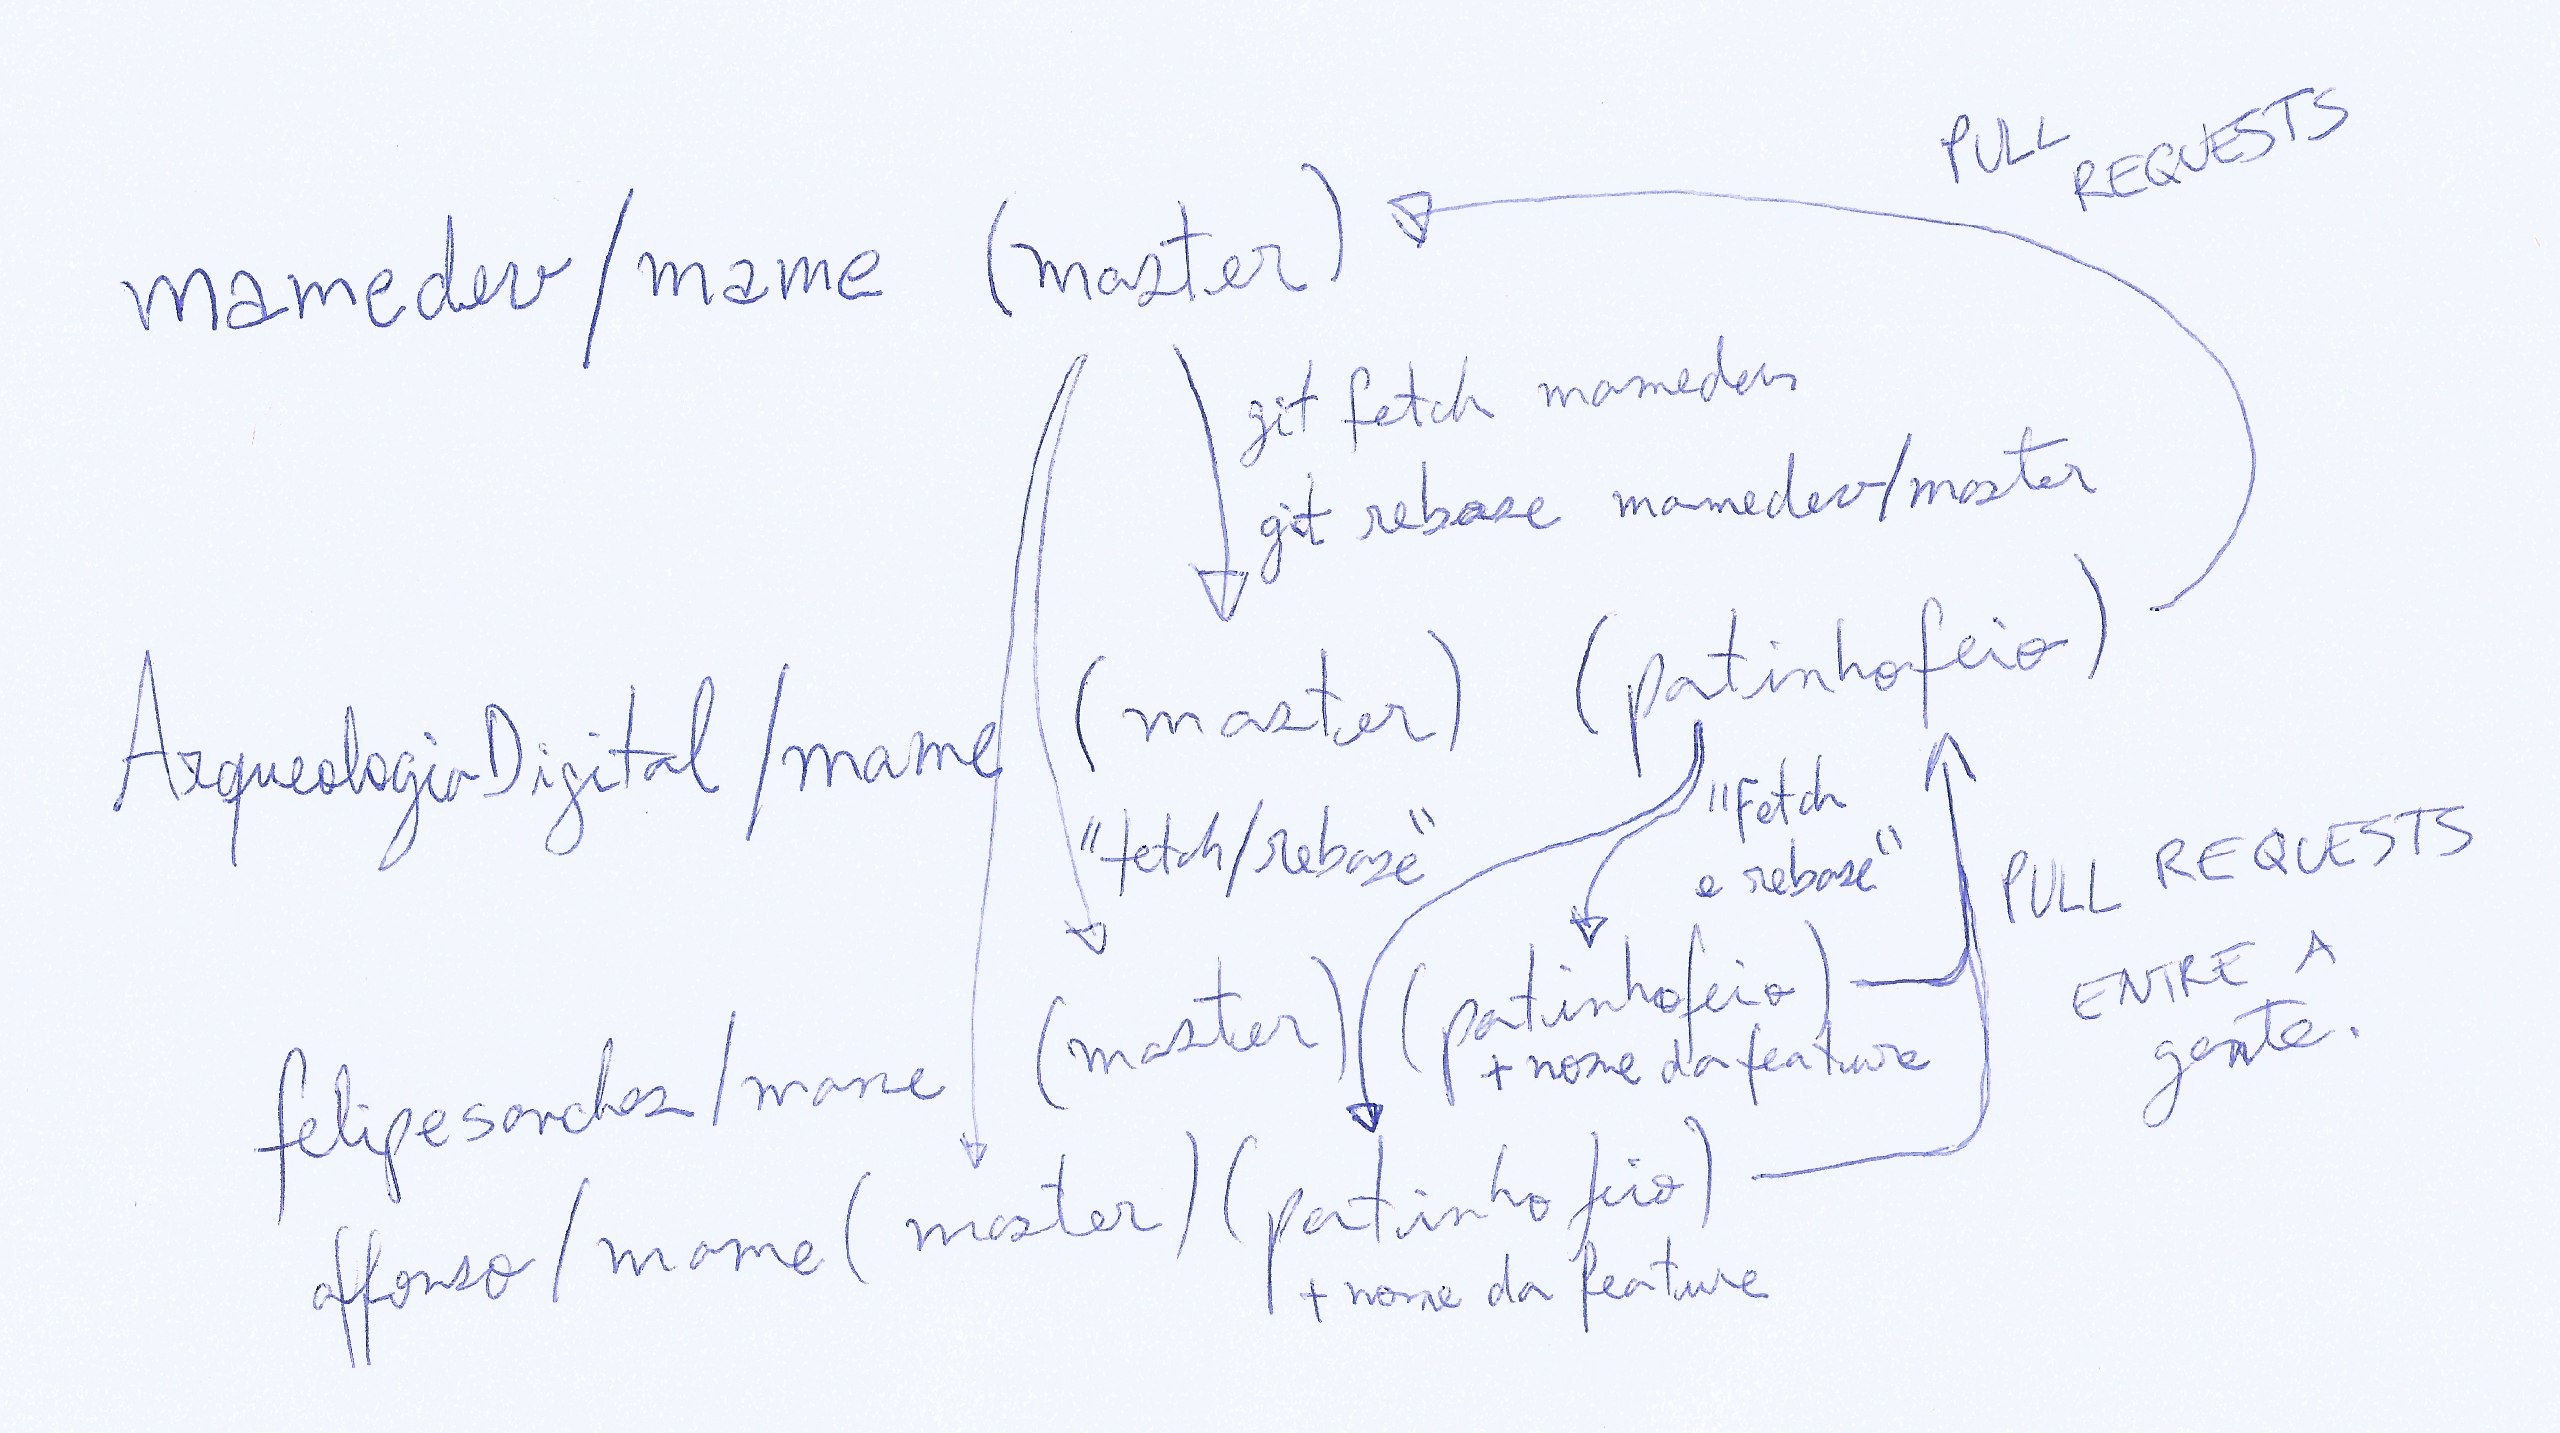 PULL
REQUESTS
mamedev/mame (master)
git fetch mamedev
git rebase mamedev/master
ArqueologiaDigital/mame (master) (patinhofeio)
"fetch/rebase"
"fetch
e rebase"
PULL REQUESTS
ENTRE A
gente.
felipesanches/mame (master) (patinhofeio)
+ nome da feature
affonso/mame (master) (patinhofeio)
+ nome da feature